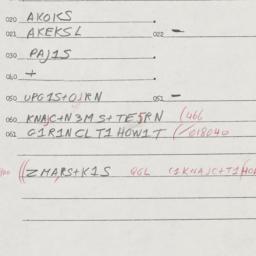 020 AKOKS .
021 AKEKSL 022 –
030 PAJ1S .
040 + .
050 UPG1S+OJRN 051 –
060 KNAJC+N3MS+TE5RN (466
061 G1R1NCLT1HOW1T (/018040
((ZMARS+K1S GGL (1KNAJC+T1HOW